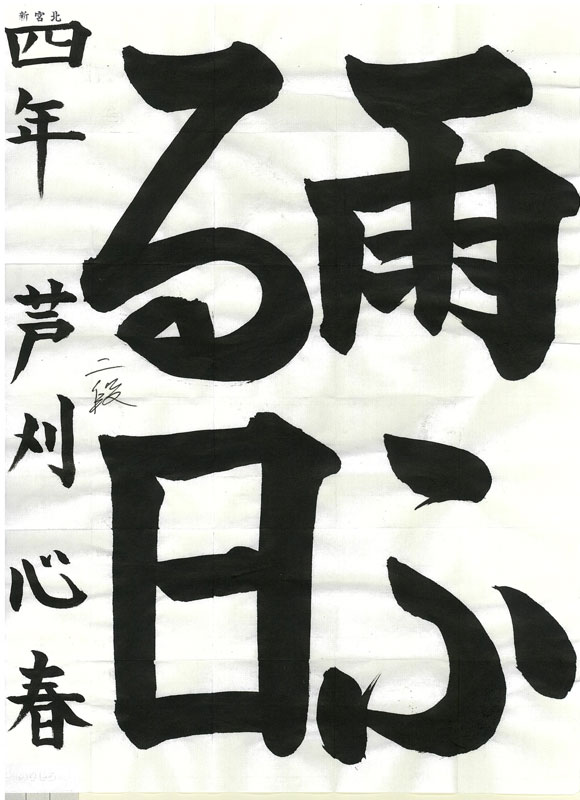 雨ふ
る日
二段
新宮北
四年 芦刈心春